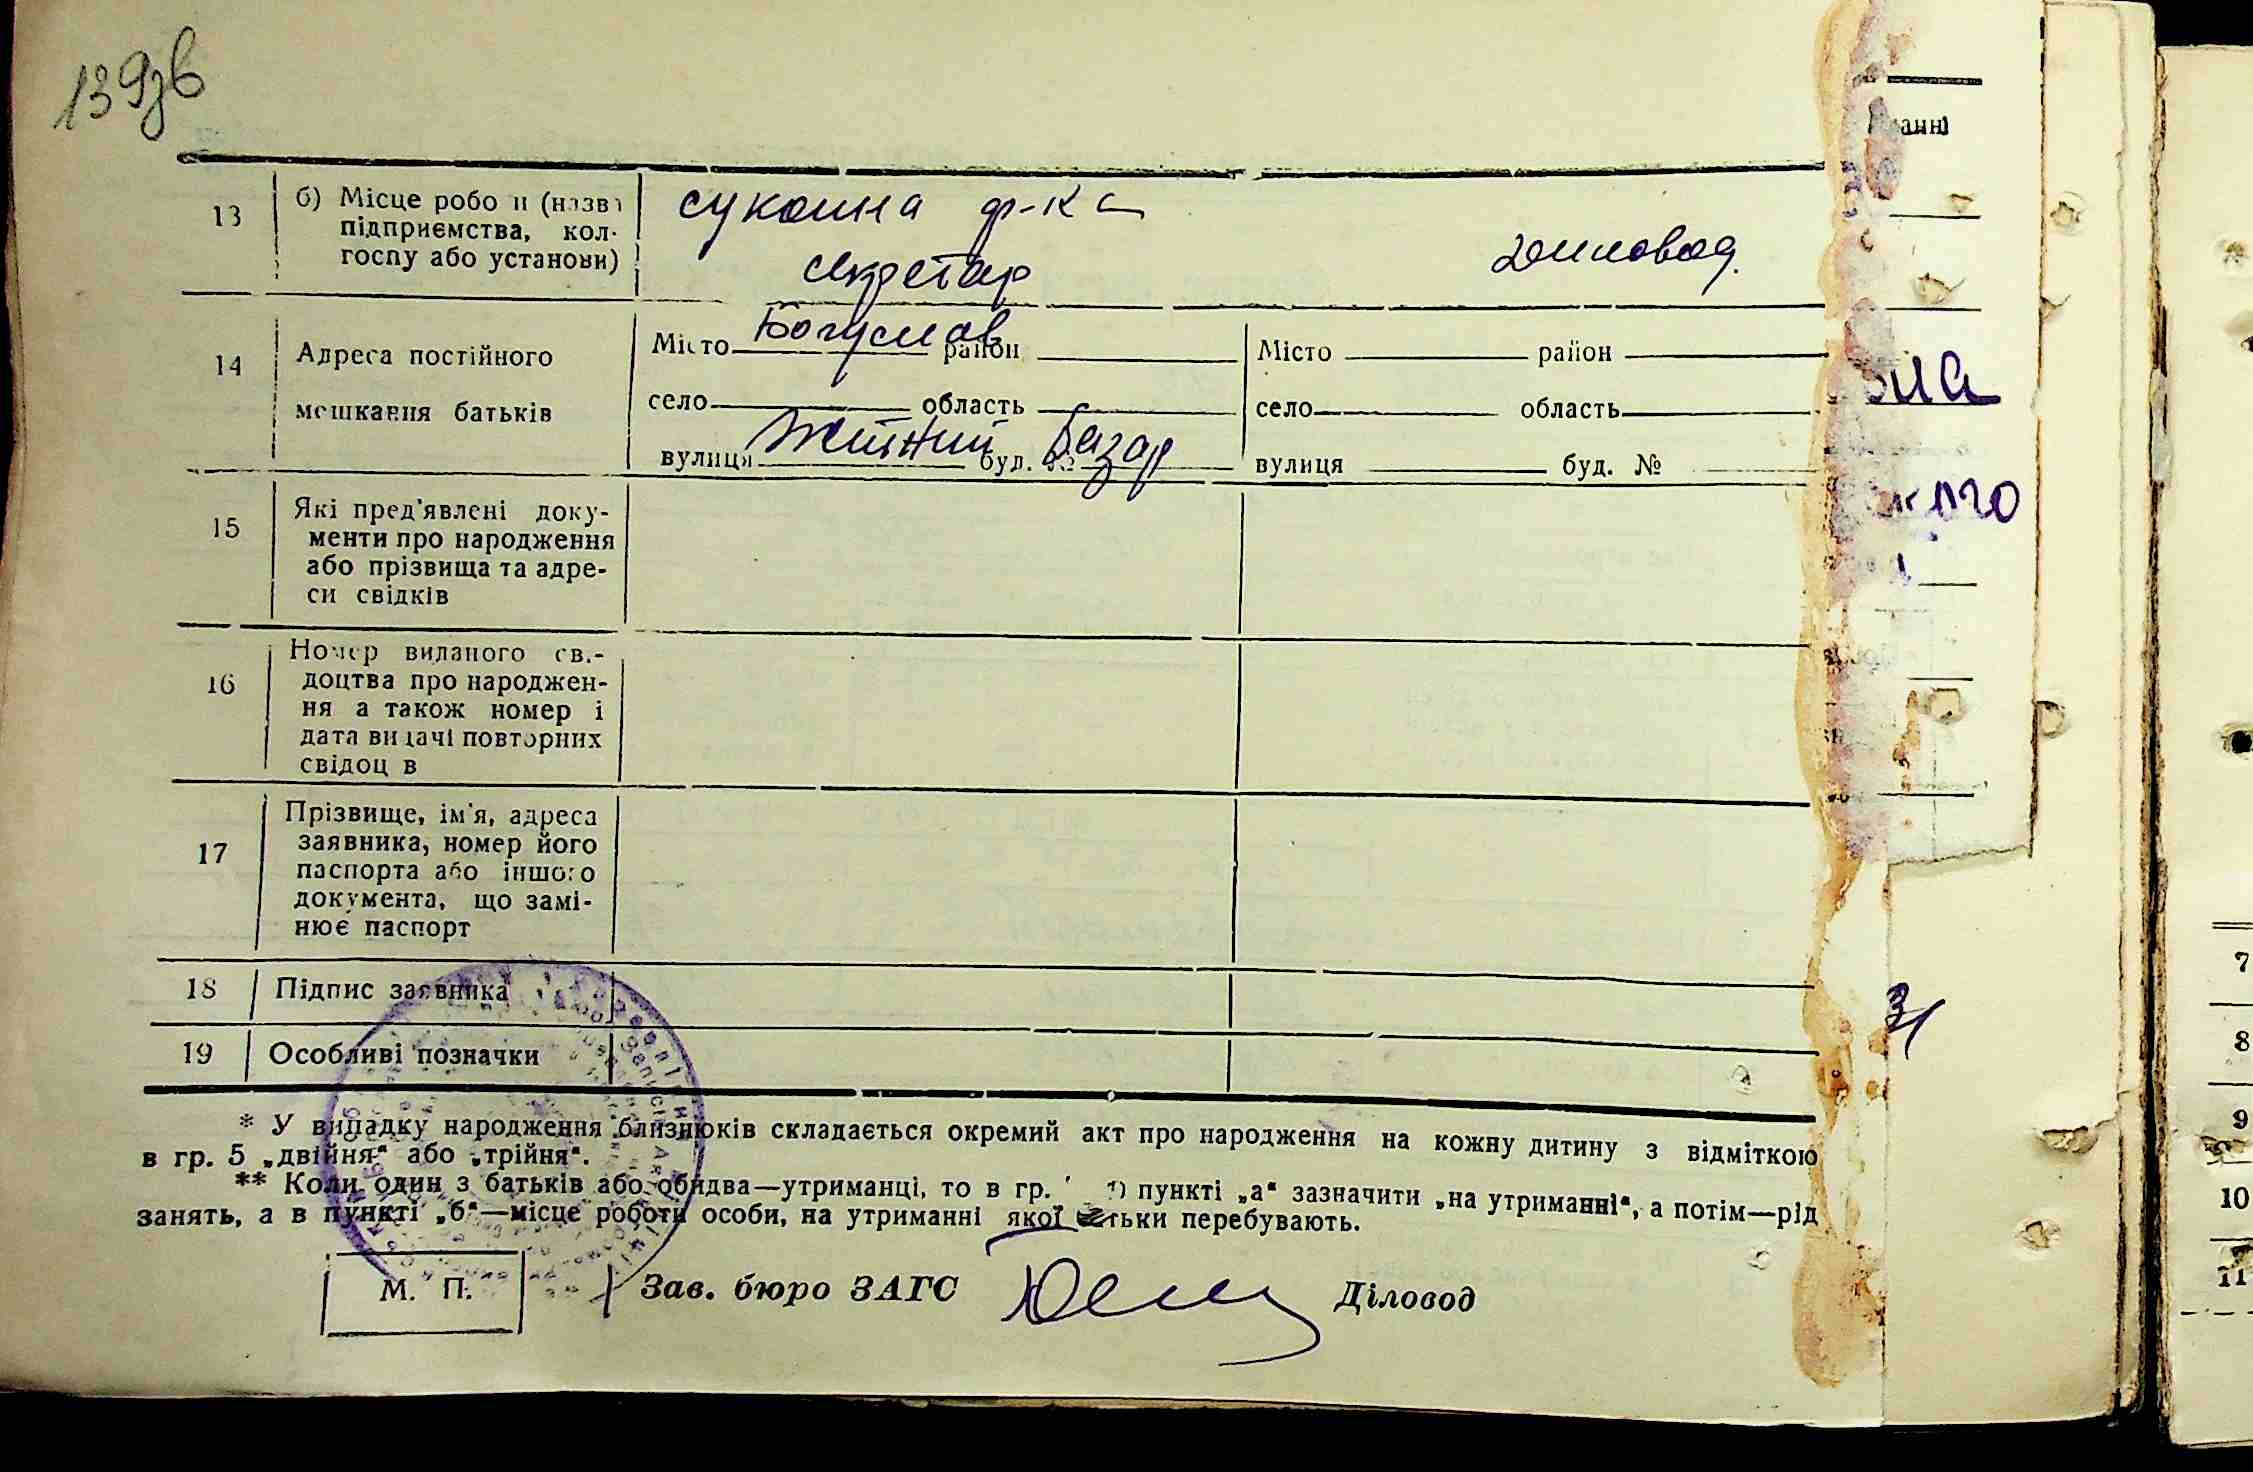 139зв
13 б) Місце робо и (назва сукошна ф-ка
підприємства, кол-
госпу або установи) секретар діловод.
14 Адреса постійного Місто Богуслав район Місто район
мешкання батьків село область село область
вулиця Житній базар буд. № вулиця буд. №
15 Які пред'явлені доку-
менти про народження
або прізвища та адре-
си свідків
16 Номер виданого св.-
доцтва про народжен-
ня а також номер і
дата видачі повторних
свідоц в
17 Прізвище, ім'я, адреса
заявника, номер його
паспорта або іншого
документа, що замі-
нює паспорт
18 Підпис заявника
19 Особливі позначки
* У випадку народження близнюків складається окремий акт про народження на кожну дитину з відміткою
в гр. 5 „двійня“ або „трійня“.
** Коли один з батьків або обидва—утриманці, то в гр. пункті „а“ зазначити „на утриманні“, а потім—рід
занять, а в пункті „б“—місце роботи особи, на утриманні якої тьки перебувають.
М. П. Зав. бюро ЗАГС Діловод
7
8
9
10
11